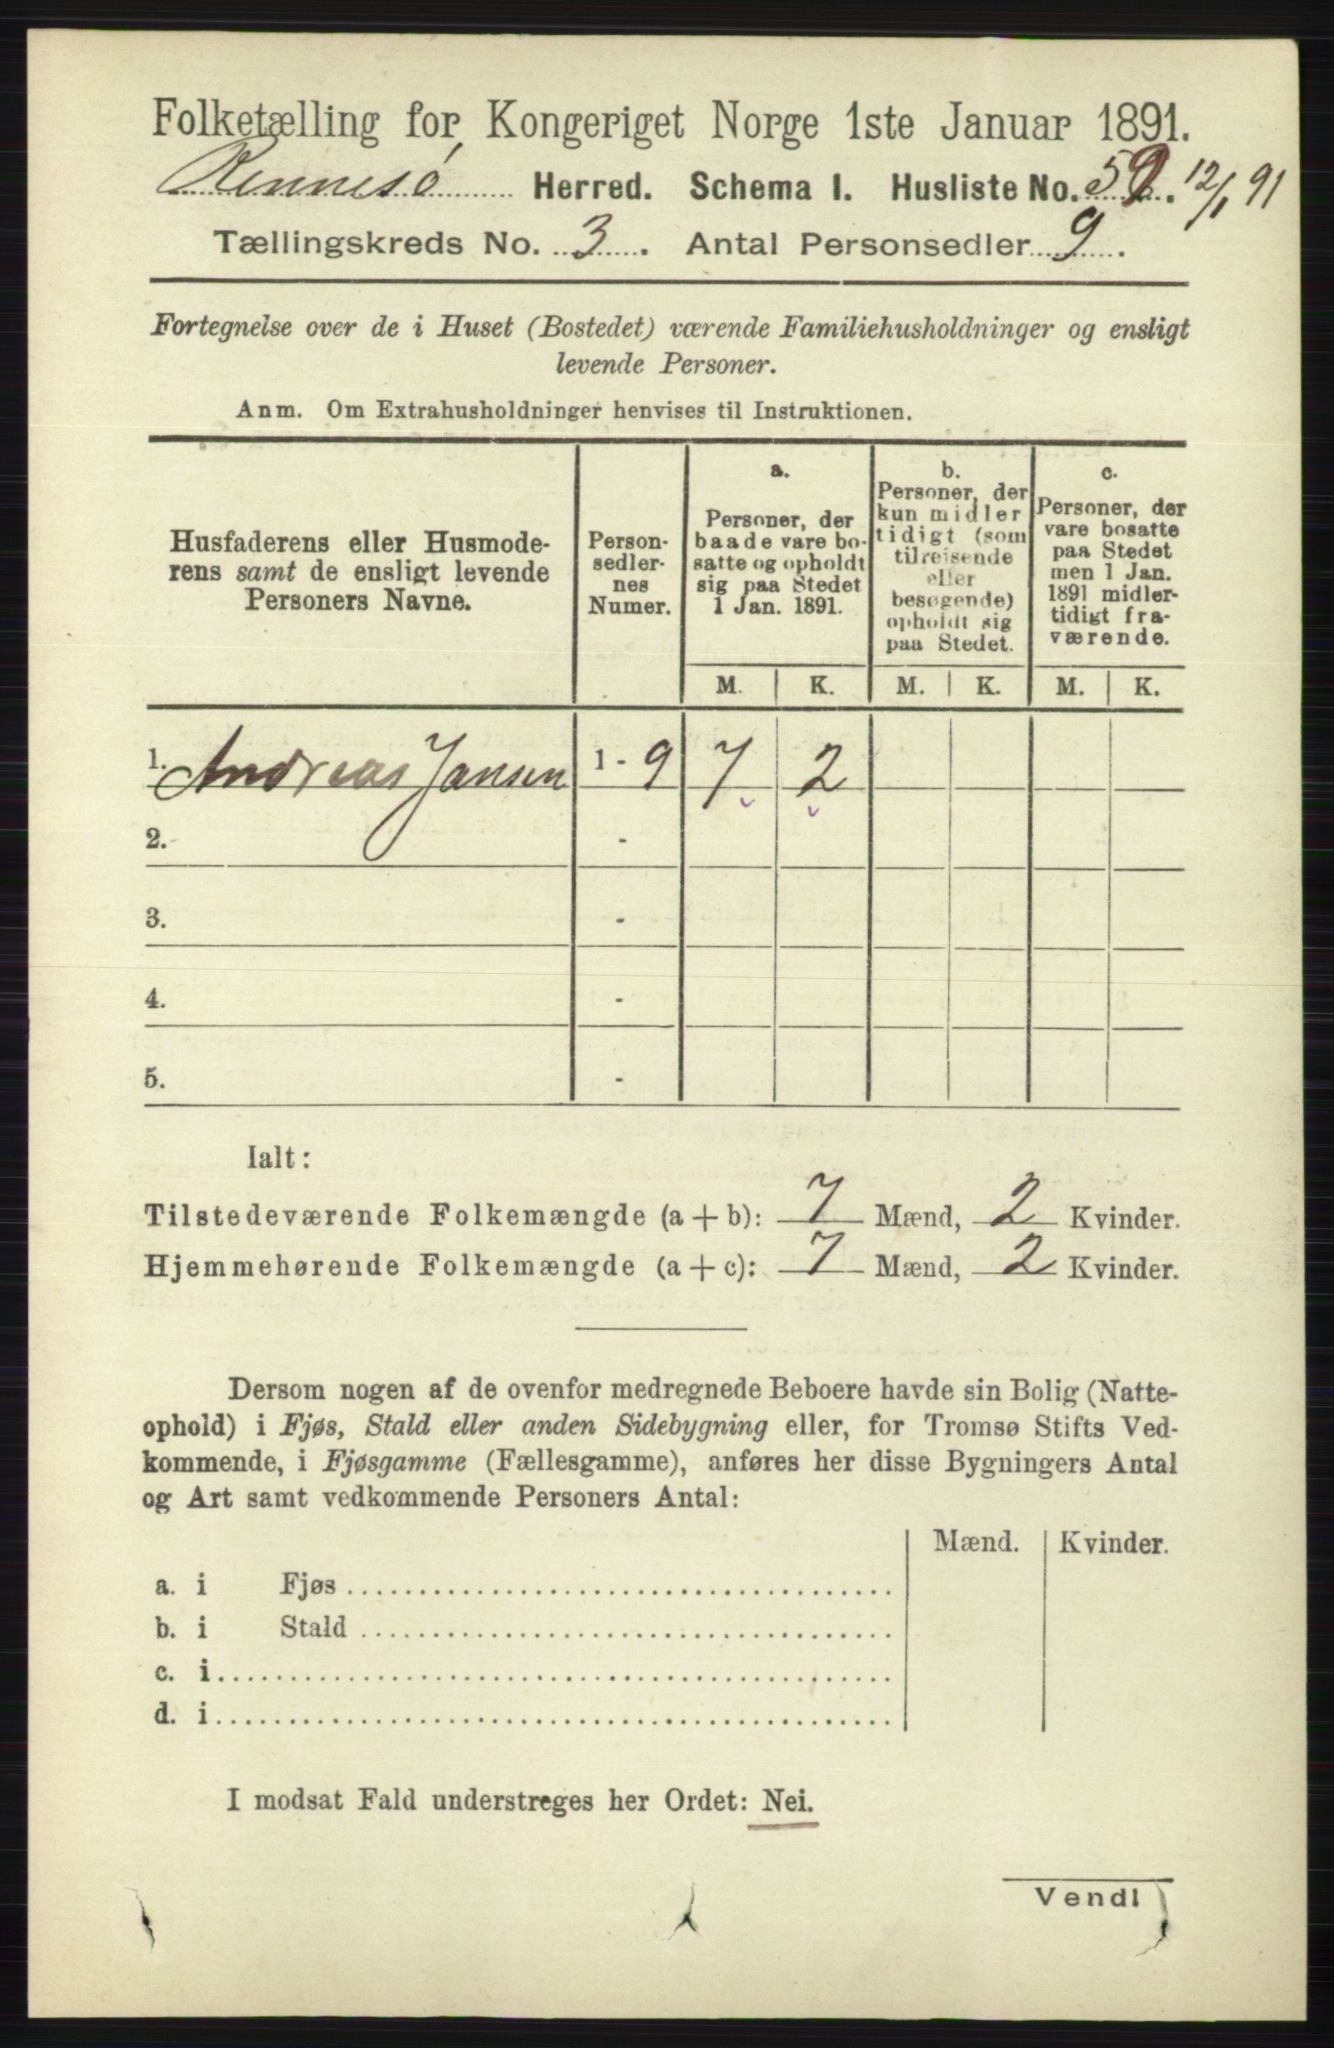 Folketælling for Kongeriget Norge 1ste Januar 1891.
Rennesö Herred. Schema 1. Husliste No. 12/1 91
Tællingskreds No. 3. Antal Personsedler 9.
Fortegnelse over de i Huset (Bostedet) værende Familiehusholdninger og ensligt
levende Personer.
Anm. Om Extrahusholdninger henvises til Instruktionen.
Husfaderens eller Husmode-
rens samt de ensligt levende
Personers Navne.
Person-
sedler-
nes
Numer.
a.
Personer, der
baade vare bo-
satte og opholdt
sig paa Stedet
1 Jan. 1891.
b.
Personer, der
kun midler
tidigt (som
tilreisende
eller
besøgende)
opholdt sig
paa Stedet.
c.
Personer, der
vare bosatte
paa Stedet
men 1 Jan.
1891 midler-
tidigt fra-
værende.
M. K. M. K. M. K.
1. Andreas Jansen 1 - 9 7 2
2. -
3. -
4. -
5. -
Ialt:
Tilstedeværende Folkemængde (a + b): 7 Mænd, 2 Kvinder.
Hjemmehørende Folkemængde (a + c): 7 Mænd, 2 Kvinder.
Dersom nogen af de ovenfor medregnede Beboere havde sin Bolig (Natte-
ophold) i Fjøs, Stald eller anden Sidebygning eller, for Tromsø Stifts Ved-
kommende, i Fjøsgamme (Fællesgamme), anføres her disse Bygningers Antal
og Art samt vedkommende Personers Antal:
Mænd. Kvinder.
a. i Fjøs
b. i Stald
c. i
d. i
I modsat Fald understreges her Ordet: Nei.
Vend!